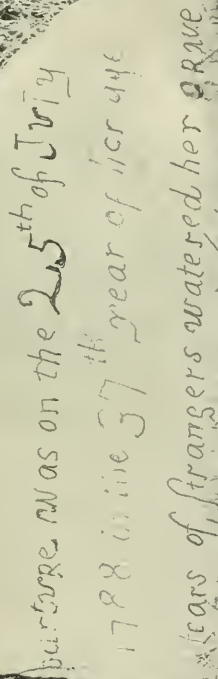 parture was on the 25th of July
1788 in the 37th year of her age
tears of strangers watered her grave